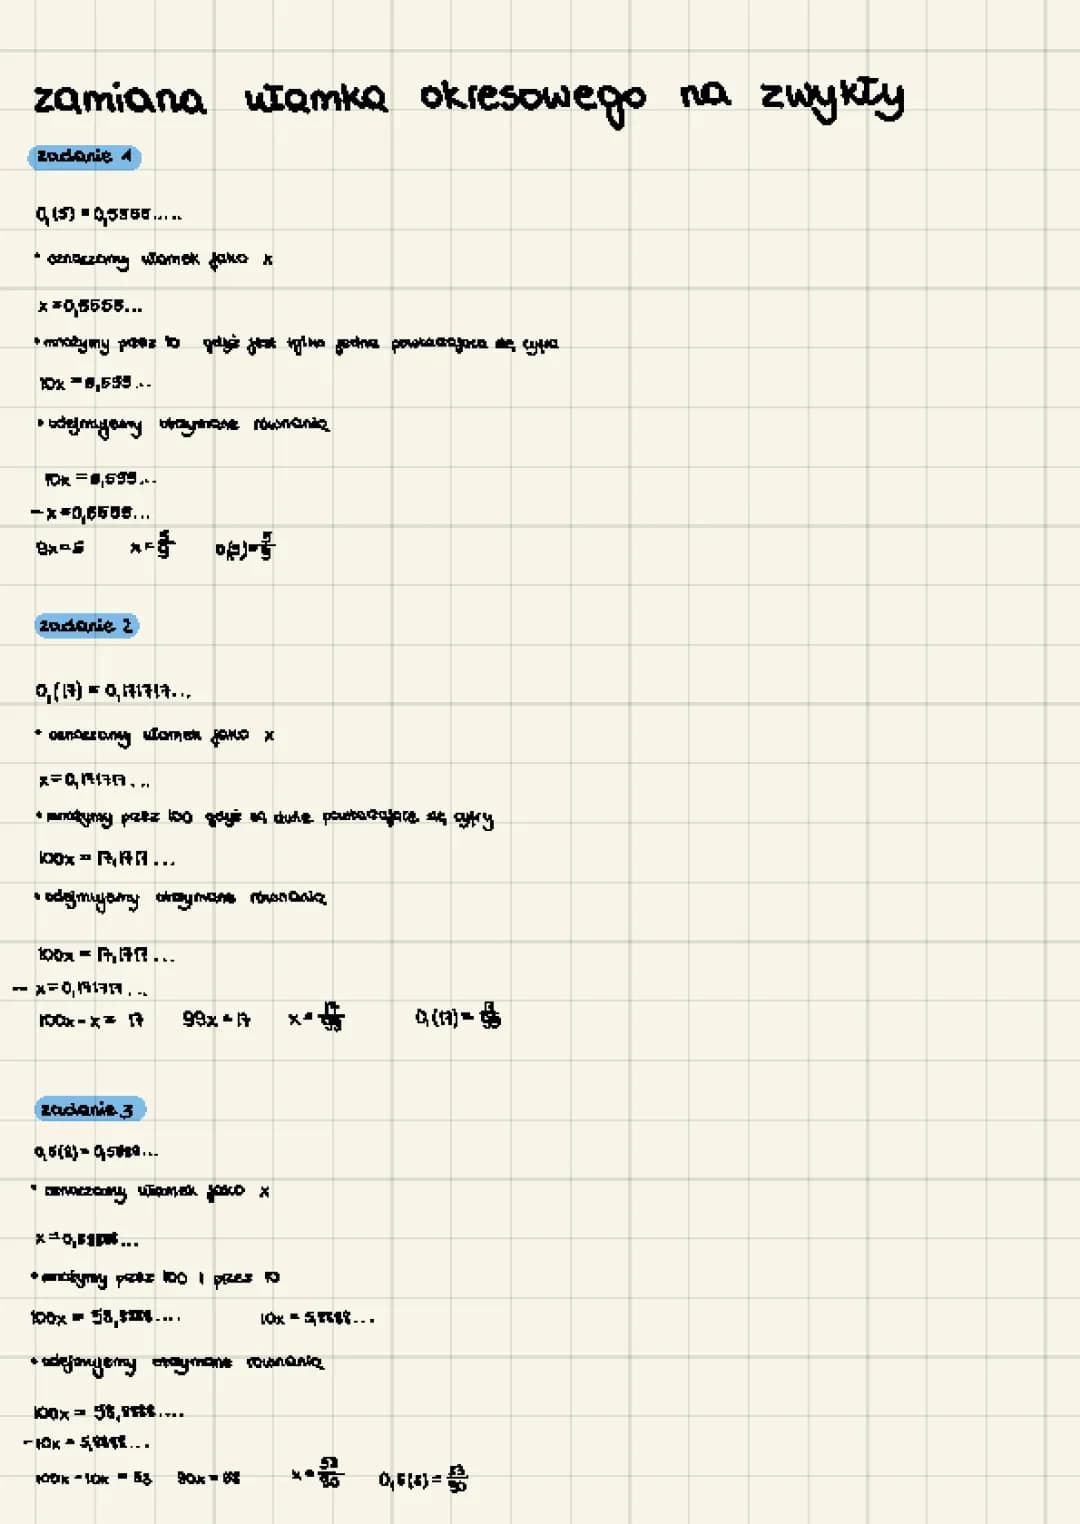 zamiana ułamka okresowego na zwykły
zadanie 1
0,(5) = 0,5555.....
• oznaczamy ułamek jako x
x = 0,5555...
• mnożymy przez 10 gdyż jest tylko jedna powtarzająca się cyfra
10x = 5,555...
• odejmujemy otrzymane równania
10x = 5,555...
- x = 0,5555...
9x = 5 x = 5/9 0,(5) = 5/9
zadanie 2
0,(17) = 0,171717...
• oznaczamy ułamek jako x
x = 0,171717...
• mnożymy przez 100 gdyż są dwie powtarzające się cyfry
100x = 17,1717...
• odejmujemy otrzymane równania
100x = 17,1717...
- x = 0,171717...
100x - x = 17 99x = 17 x = 17/99 0,(17) = 17/99
zadanie 3
0,5(8) = 0,5888...
• oznaczamy ułamek jako x
x = 0,5888...
• mnożymy przez 100 i przez 10
100x = 58,8888.... 10x = 5,8888...
• odejmujemy otrzymane równania
100x = 58,8888....
- 10x = 5,8888...
100x - 10x = 53 90x = 53 x = 53/90 0,5(8) = 53/90